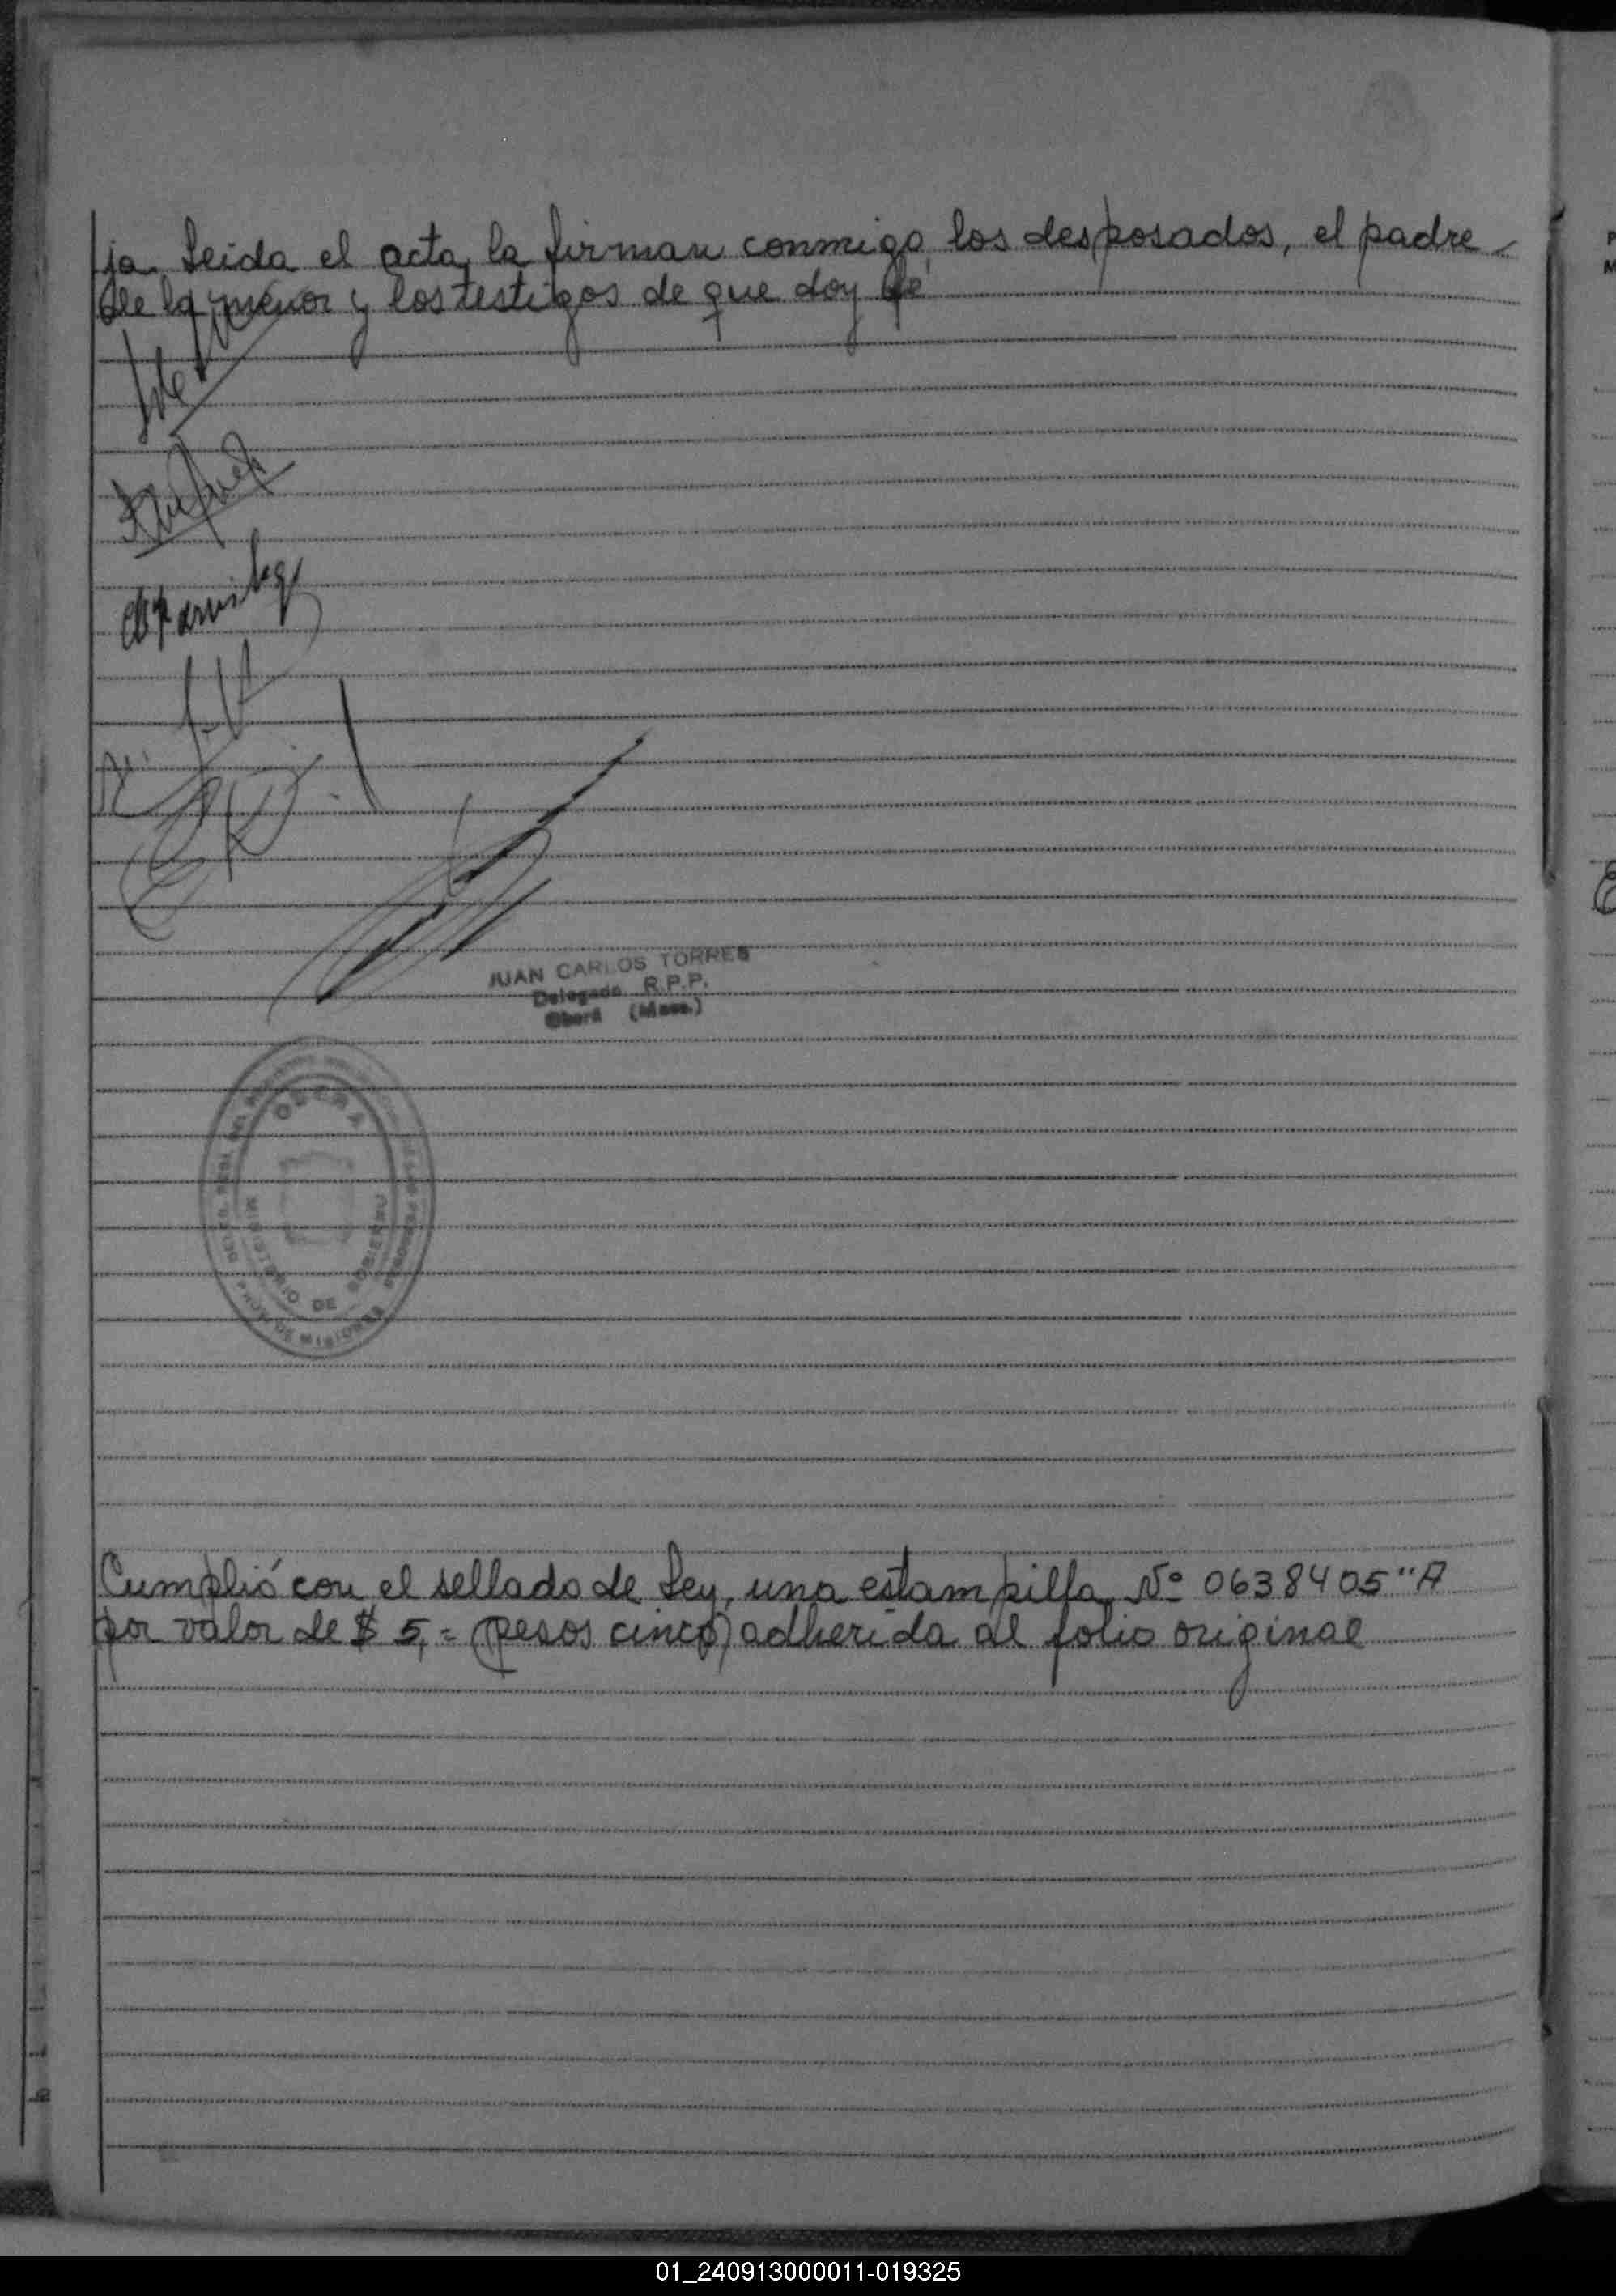 ja. Leida el acta, la firman conmigo los desposados, el padre
de la menor y los testigos de que doy fé
JUAN CARLOS TORRES
Delegado R.P.P.
Oberá (Mnes.)
OBERA
MINISTERIO DE GOBIERNO
DE LAS PERSONAS
DE MISIONES
Cumplió con el sellado de Ley, una estampilla Nº 0638405 "A
por valor de $ 5,= (pesos cinco) adherida al folio original
01_240913000011-019325